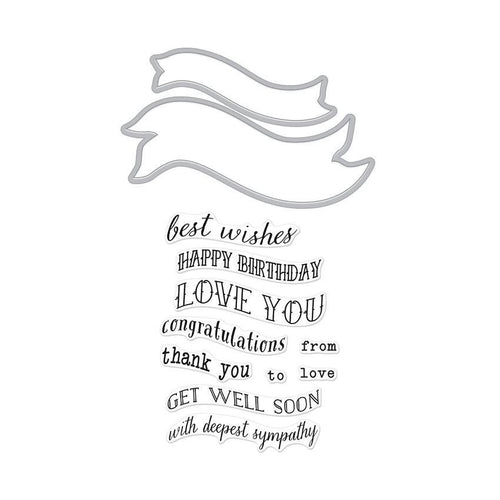 best wishes
HAPPY BIRTHDAY
LOVE YOU
congratulations
from
thank you
to
love
GET WELL SOON
with deepest sympathy